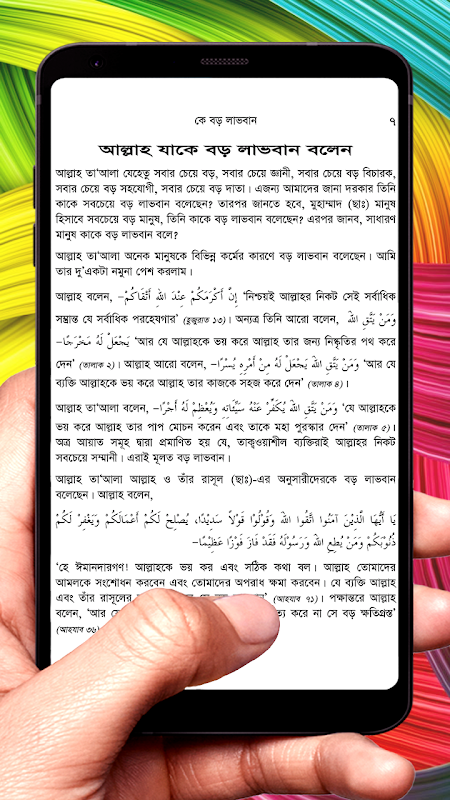 কে বড় লাভবান ৭
আল্লাহ যাকে বড় লাভবান বলেন
আল্লাহ তা'আলা যেহেতু সবার চেয়ে বড়, সবার চেয়ে জ্ঞানী, সবার চেয়ে বড় বিচারক,
সবার চেয়ে বড় সহযোগী, সবার চেয়ে বড় দাতা। এজন্য আমাদের জানা দরকার তিনি
কাকে সবচেয়ে বড় লাভবান বলেছেন? তারপর জানতে হবে, মুহাম্মাদ (ছাঃ) মানুষ
হিসাবে সবচেয়ে বড় মানুষ, তিনি কাকে বড় লাভবান বলেছেন? এরপর জানব, সাধারণ
মানুষ কাকে বড় লাভবান বলে?
আল্লাহ তা'আলা অনেক মানুষকে বিভিন্ন কর্মের কারণে বড় লাভবান বলেছেন। আমি
তার দু'একটা নমুনা পেশ করলাম।
আল্লাহ বলেন, –إِنَّ أَكْرَمَكُمْ عِنْدَ اللهِ أَتْقَاكُمْ 'নিশ্চয়ই আল্লাহর নিকট সেই সর্বাধিক
সম্ভ্রান্ত যে সর্বাধিক পরহেযগার' (হুজুরাত ১৩)। অন্যত্র তিনি আরো বলেন, وَمَنْ يَتَّقِ اللهَ
–يَجْعَلْ لَهُ مَخْرَجًا 'আর যে আল্লাহকে ভয় করে আল্লাহ তার জন্য নিষ্কৃতির পথ করে
দেন' (তালাক ২)। আল্লাহ আরো বলেন, –وَمَنْ يَتَّقِ اللهَ يَجْعَلْ لَهُ مِنْ أَمْرِهِ يُسْرًا 'আর যে
ব্যক্তি আল্লাহকে ভয় করে আল্লাহ তার কাজকে সহজ করে দেন' (তালাক ৪)।
আল্লাহ তা'আলা বলেন, –وَمَنْ يَتَّقِ اللهَ يُكَفِّرْ عَنْهُ سَيِّئَاتِهِ وَيُعْظِمْ لَهُ أَجْرًا 'যে আল্লাহকে
ভয় করে আল্লাহ তার পাপ মোচন করেন এবং তাকে মহা পুরস্কার দেন' (তালাক ৫)।
অত্র আয়াত সমূহ দ্বারা প্রমাণিত হয় যে, তাক্বওয়াশীল ব্যক্তিরাই আল্লাহর নিকট
সবচেয়ে সম্মানী। এরাই মূলত বড় লাভবান।
আল্লাহ তা'আলা আল্লাহ ও তাঁর রাসূল (ছাঃ)-এর অনুসারীদেরকে বড় লাভবান
বলেছেন। আল্লাহ বলেন,
يَا أَيُّهَا الَّذِينَ آمَنُوا اتَّقُوا اللهَ وَقُولُوْا قَوْلاً سَدِيْدًا، يُصْلِحْ لَكُمْ أَعْمَالَكُمْ وَيَغْفِرْ لَكُمْ
ذُنُوْبَكُمْ وَمَنْ يُطِعِ اللهَ وَرَسُوْلَهُ فَقَدْ فَازَ فَوْزًا عَظِيْمًا–
'হে ঈমানদারগণ! আল্লাহকে ভয় কর এবং সঠিক কথা বল। আল্লাহ তোমাদের
আমলকে সংশোধন করবেন এবং তোমাদের অপরাধ ক্ষমা করবেন। যে ব্যক্তি আল্লাহ
এবং তাঁর রাসূলের (আহযাব ৭১)। পক্ষান্তরে আল্লাহ
বলেন, 'আর করে না সে বড় ক্ষতিগ্রস্ত'
(আহযাব ৩৬)